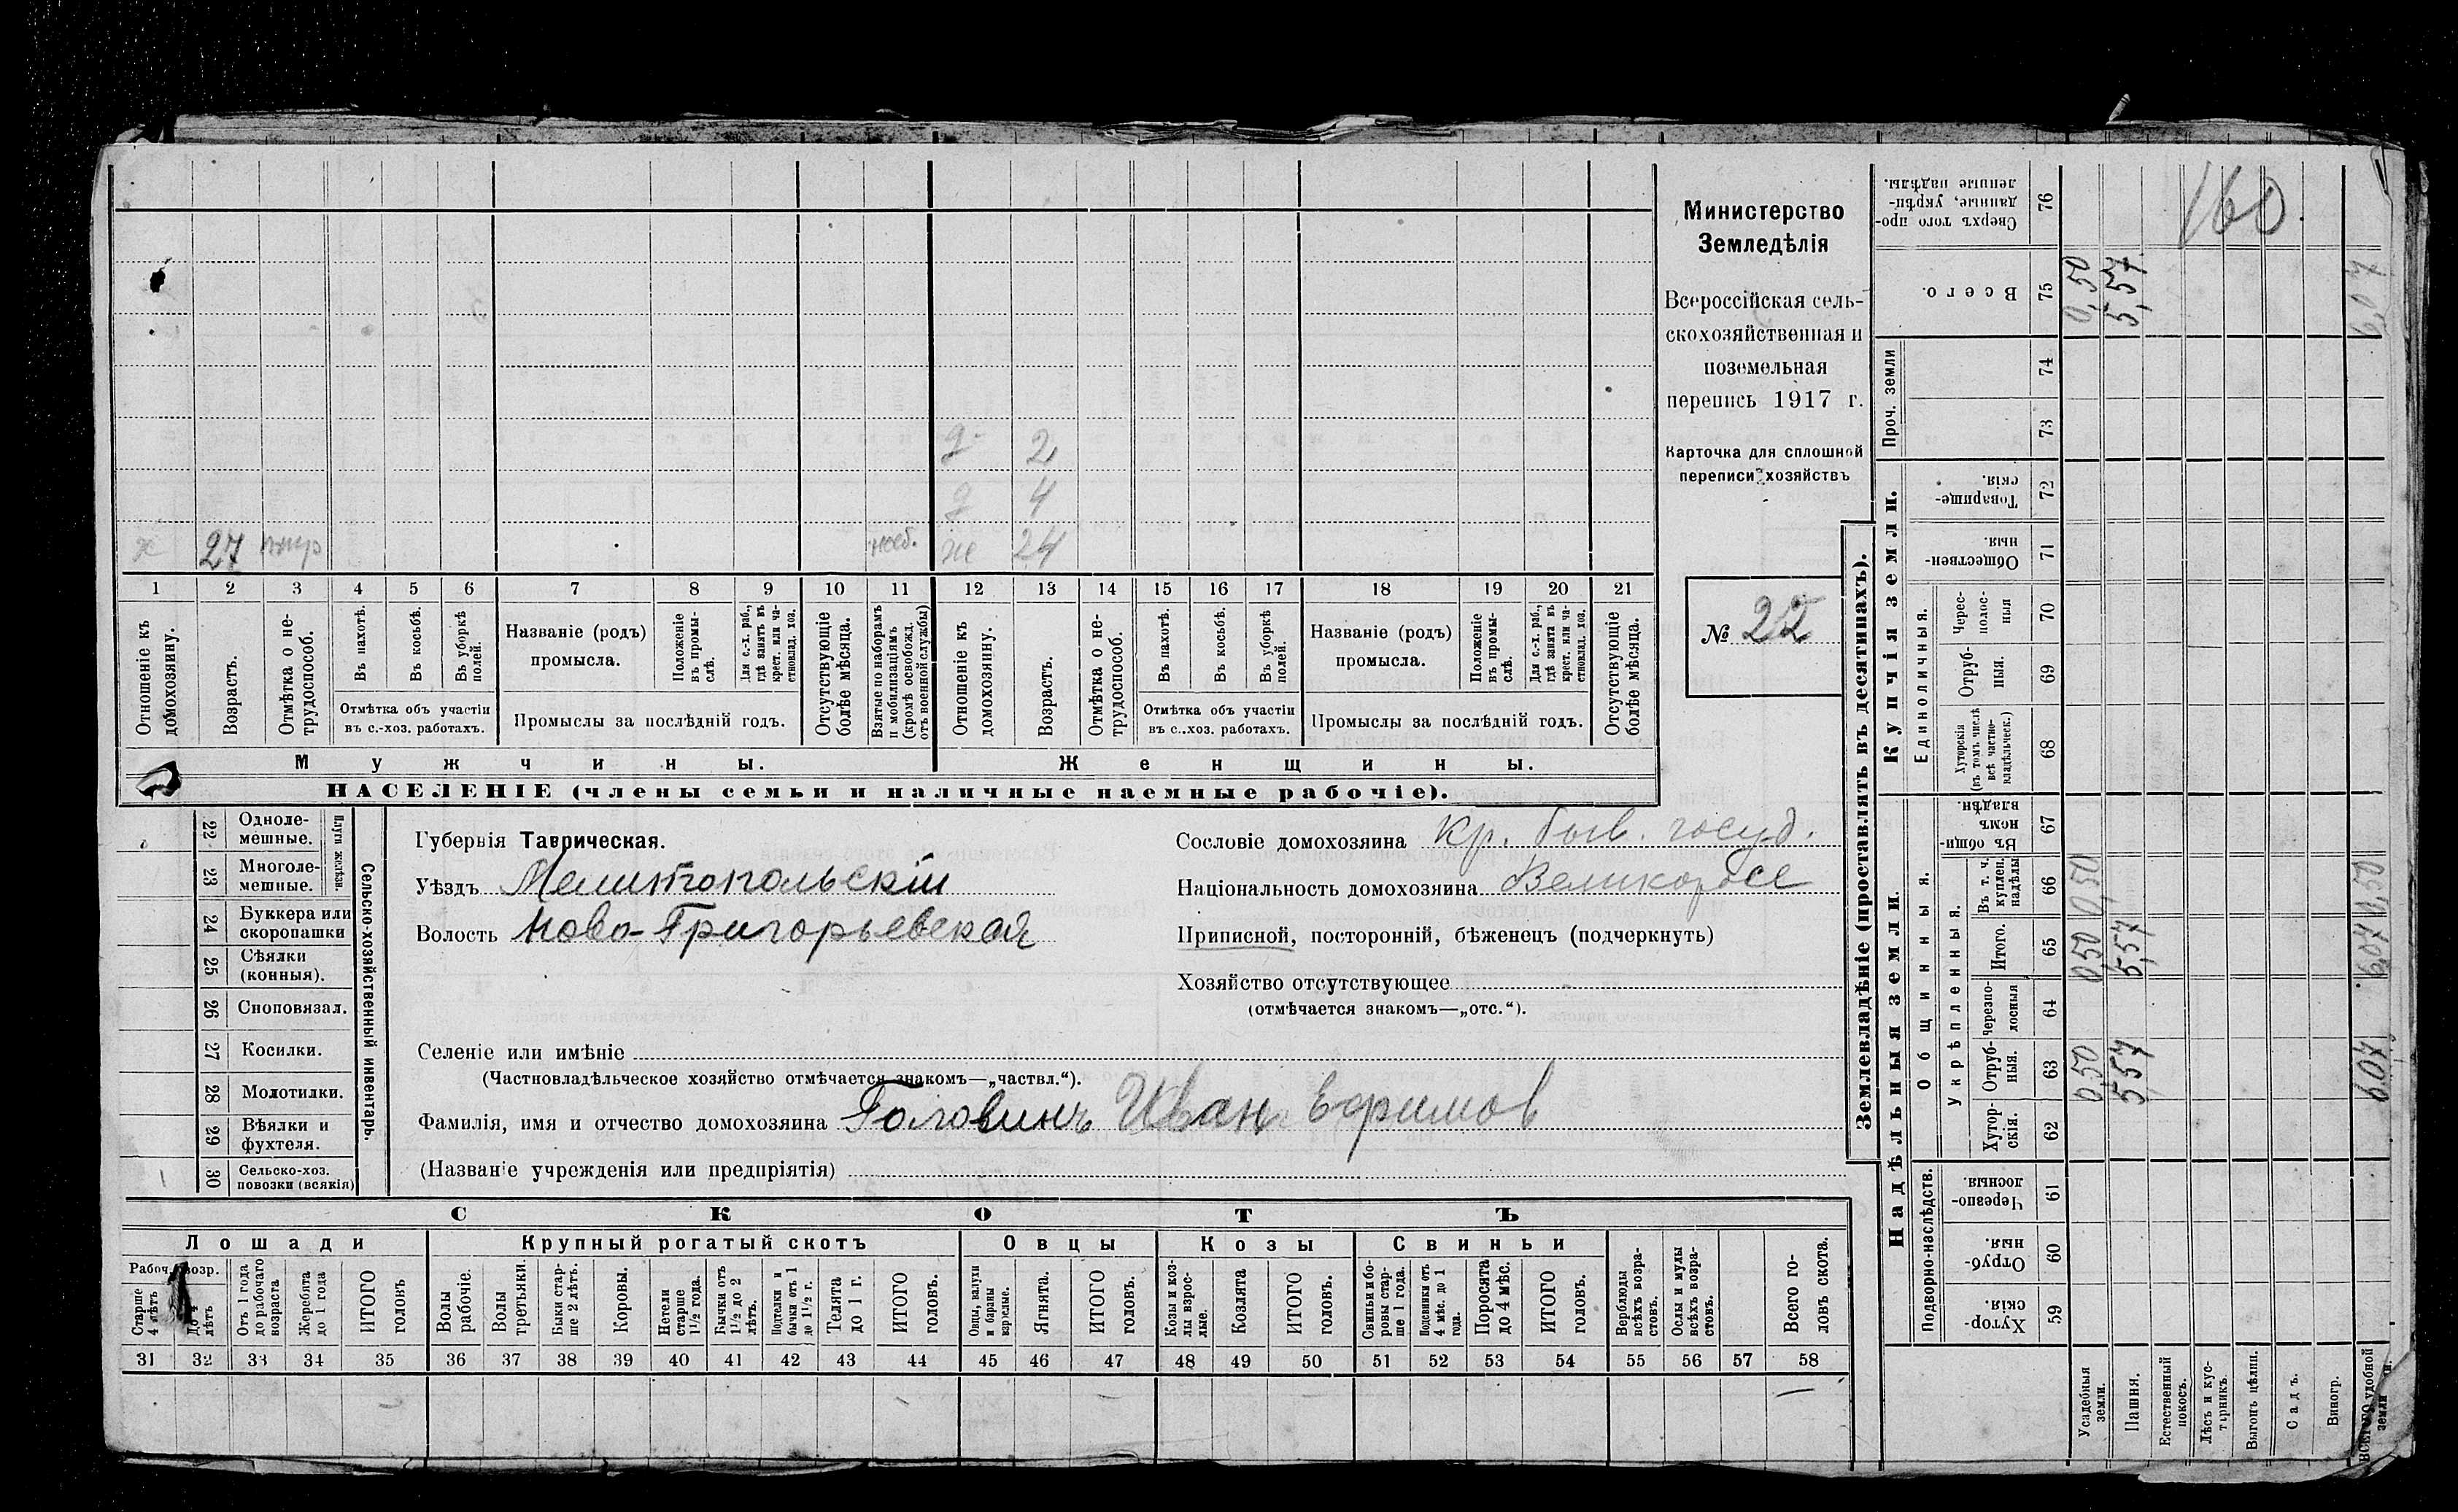 160.
Министерство
Земледѣлія
Всероссійская сель-
скохозяйственная и
поземельная
перепись 1917 г.
Карточка для сплошной
переписи хозяйствъ
№ 22
д 2
д 4
х 27 ж 24
1 2 3 4 5 6 7 8 9 10 11 12 13 14 15 16 17 18 19 20 21
Отношеніе къ домохозяину.
Возрастъ.
Отмѣтка о не-трудоспособ.
Въ пахотѣ.
Въ косьбѣ.
Въ уборкѣ полей.
Отмѣтка объ участіи
въ с.-хоз. работахъ.
Названіе (родъ)
промысла.
Положеніе въ промы-слѣ.
Для с.-х. раб., гдѣ занятъ въ крест. или ча-стновлад. хоз.
Промыслы за послѣдній годъ.
Отсутствующіе болѣе мѣсяца.
Взятые по наборамъ и мобилизаціямъ (кромѣ освобожд. отъ военной службы)
Отношеніе къ домохозяину.
Возрастъ.
Отмѣтка о не-трудоспособ.
Въ пахотѣ.
Въ косьбѣ.
Въ уборкѣ полей.
Отмѣтка объ участіи
въ с..хоз. работахъ.
Названіе (родъ)
промысла.
Положеніе въ промы-слѣ.
Для с.-х. раб., гдѣ занята въ крест. или ча-стновлад. хоз.
Промыслы за послѣдній годъ.
Отсутствующіе болѣе мѣсяца.
Мужчины. Женщины.
НАСЕЛЕНІЕ (члены семьи и наличные наемные рабочіе).
Сельско-хозяйственный инвентарь.
Плуги желѣзн.
22 Одноле-мешные.
23 Многоле-мешные.
24 Буккера или скоропашки
25 Сѣялки (конныя).
26 Сноповязал.
27 Косилки.
28 Молотилки.
29 Вѣялки и фухтеля.
1 30 Сельско-хоз. повозки (всякія)
Губернія Таврическая.
Уѣздъ Мелитопольскій
Волость Ново-Григорьевская
Сословіе домохозяина Кр. быв. госуд.
Національность домохозяина Великоросс
Приписной, посторонній, бѣженецъ (подчеркнуть)
Хозяйство отсутствующее
(отмѣчается знакомъ—„отс.“).
Селеніе или имѣніе
(Частновладѣльческое хозяйство отмѣчается знакомъ—„частвл.“).
Фамилія, имя и отчество домохозяина Головинъ Иван Ефимов
(Названіе учрежденія или предпріятія)
СКОТЪ
Лошади Крупный рогатый скотъ Овцы Козы Свиньи
Рабоч. возр.
Старше 4 лѣтъ
До 4 лѣтъ
Отъ 1 года до рабочаго возраста
Жеребята до 1 года
ИТОГО головъ
Волы рабочіе.
Волы третьяки.
Быки стар-ше 2 лѣтъ.
Коровы.
Нетели старше 1½ года.
Бычки отъ 1½ до 2 лѣтъ.
Подтелки и бычки отъ 1 до 1½ г.
Телята до 1 г.
ИТОГО головъ.
Овцы, валухи и бараны взрослые.
Ягнята.
ИТОГО головъ.
Козы и коз-лы взрос-лые.
Козлята
ИТОГО головъ.
Свиньи и бо-ровы стар-ше 1 года.
Подсвинки отъ 4 мѣс. до 1 года.
Поросята до 4 мѣс.
ИТОГО головъ.
Верблюды всѣхъ возра-стовъ.
Ослы и мулы всѣхъ возра-стовъ.
Всего го-ловъ скота.
31 32 33 34 35 36 37 38 39 40 41 42 43 44 45 46 47 48 49 50 51 52 53 54 55 56 57 58
Землевладѣніе (проставлять въ десятинахъ).
Надѣльныя земли.
Подворно-наслѣдств.
59 Хутор-скія.
60 Отруб-ныя.
61 Черезпо-лосныя.
Общинныя.
Укрѣпленныя.
62 Хутор-скія.
63 Отруб-ныя. 0,50 5,57 6,07
64 Черезпо-лосныя
65 Итого. 0,50 5,57 6,07
66 Въ т. ч. куплен. надѣлы 0,50 0,50
67 Въ общин-номъ владѣн.
Купчія земли.
Единоличныя.
68 Хуторскія (въ томъ числѣ всѣ частно-владѣльческ.)
69 Отруб-ныя.
70 Черес-полос-ныя
71 Обществен-ныя.
72 Товарище-скія.
Проч. земли
73
74
75 Всего. 0,50 5,57 6,07
76 Сверхъ того про-данные, укрѣп-ленные надѣлы.
Усадебныя земли.
Пашня.
Естественный покосъ.
Лѣсъ и кус-тарникъ.
Выгонъ цѣлин.
Садъ.
Виногр.
ВСЕГО удобной земли